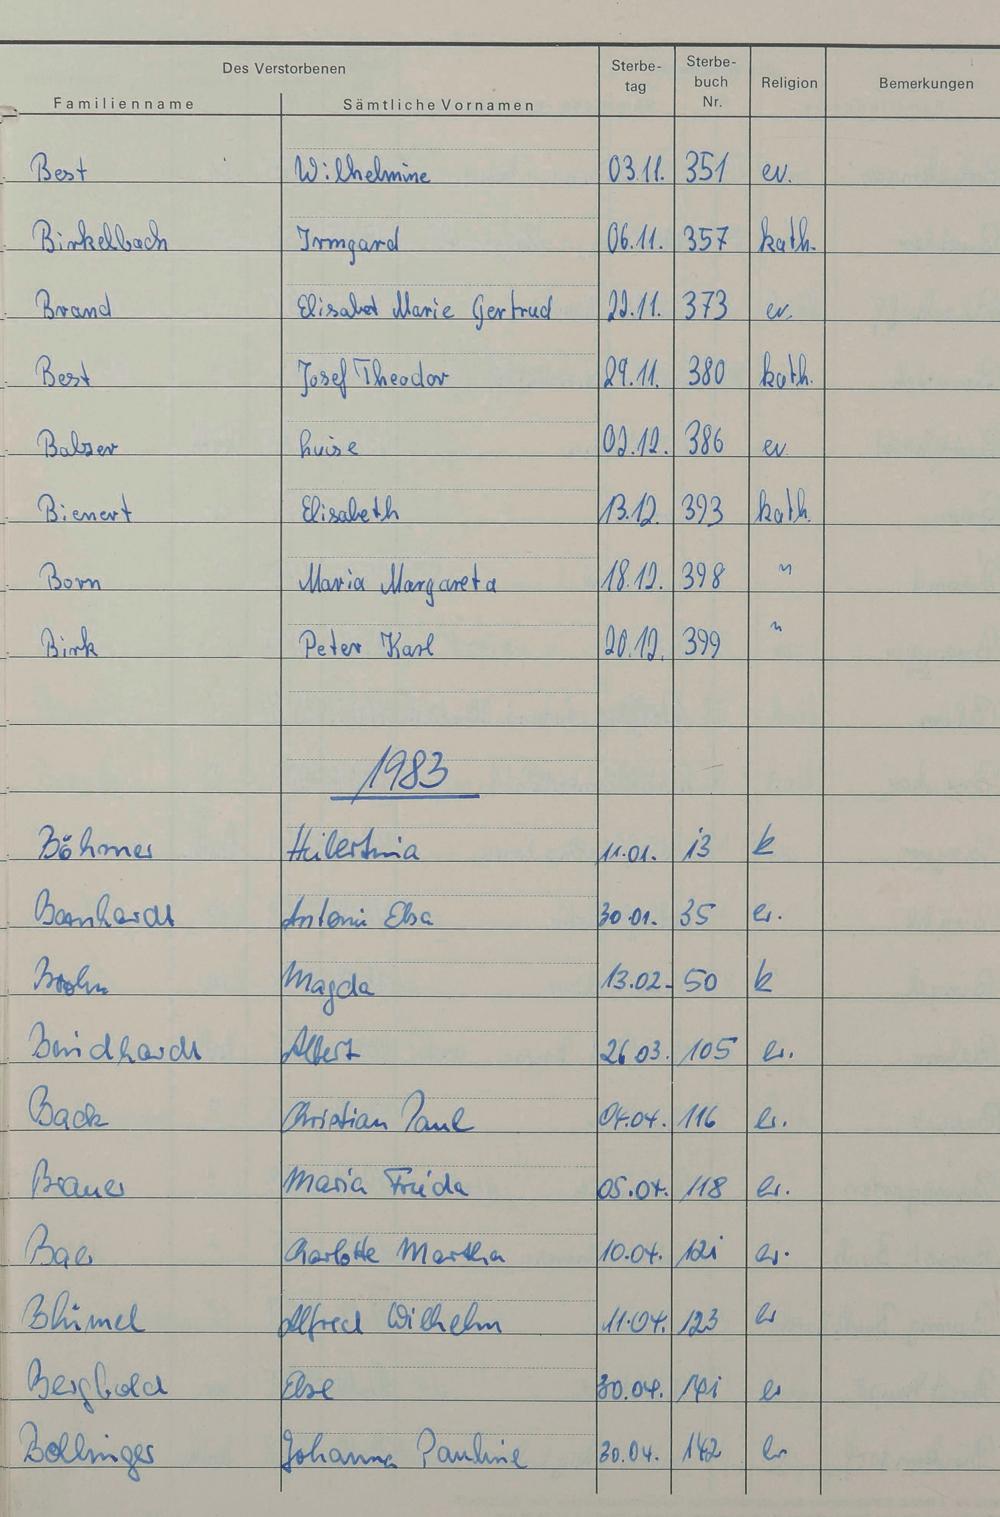 Des Verstorbenen Sterbe- Sterbe-
tag buch Religion Bemerkungen
Familienname Sämtliche Vornamen Nr.
Best Wilhelmine 03.11. 351 ev.
Birkelbach Irmgard 06.11. 357 kath.
Brand Elisabet Marie Gertrud 22.11. 373 ev.
Best Josef Theodor 29.11. 380 kath.
Balzer Luise 02.12. 386 ev
Bienert Elisabeth 13.12. 393 kath.
Born Maria Margareta 18.12. 398 "
Birk Peter Karl 20.12. 399 "
1983
Böhmer 11.01. 13 k
Bernhardt Antonie Elsa 30.01. 35 ev.
Magda 13.02. 50 k
Albert 26.03. 105 ev.
Back Christian Paul 04.04. 116 ev.
Brauer Maria Frieda 05.04. 118 ev.
Baer Charlotte Martha 10.04. 121 ev.
Blümel Alfred Wilhelm 11.04. 123 ev
Bergbold Else 30.04. 141 ev
Bollinger Johanna Pauline 30.04. 142 ev